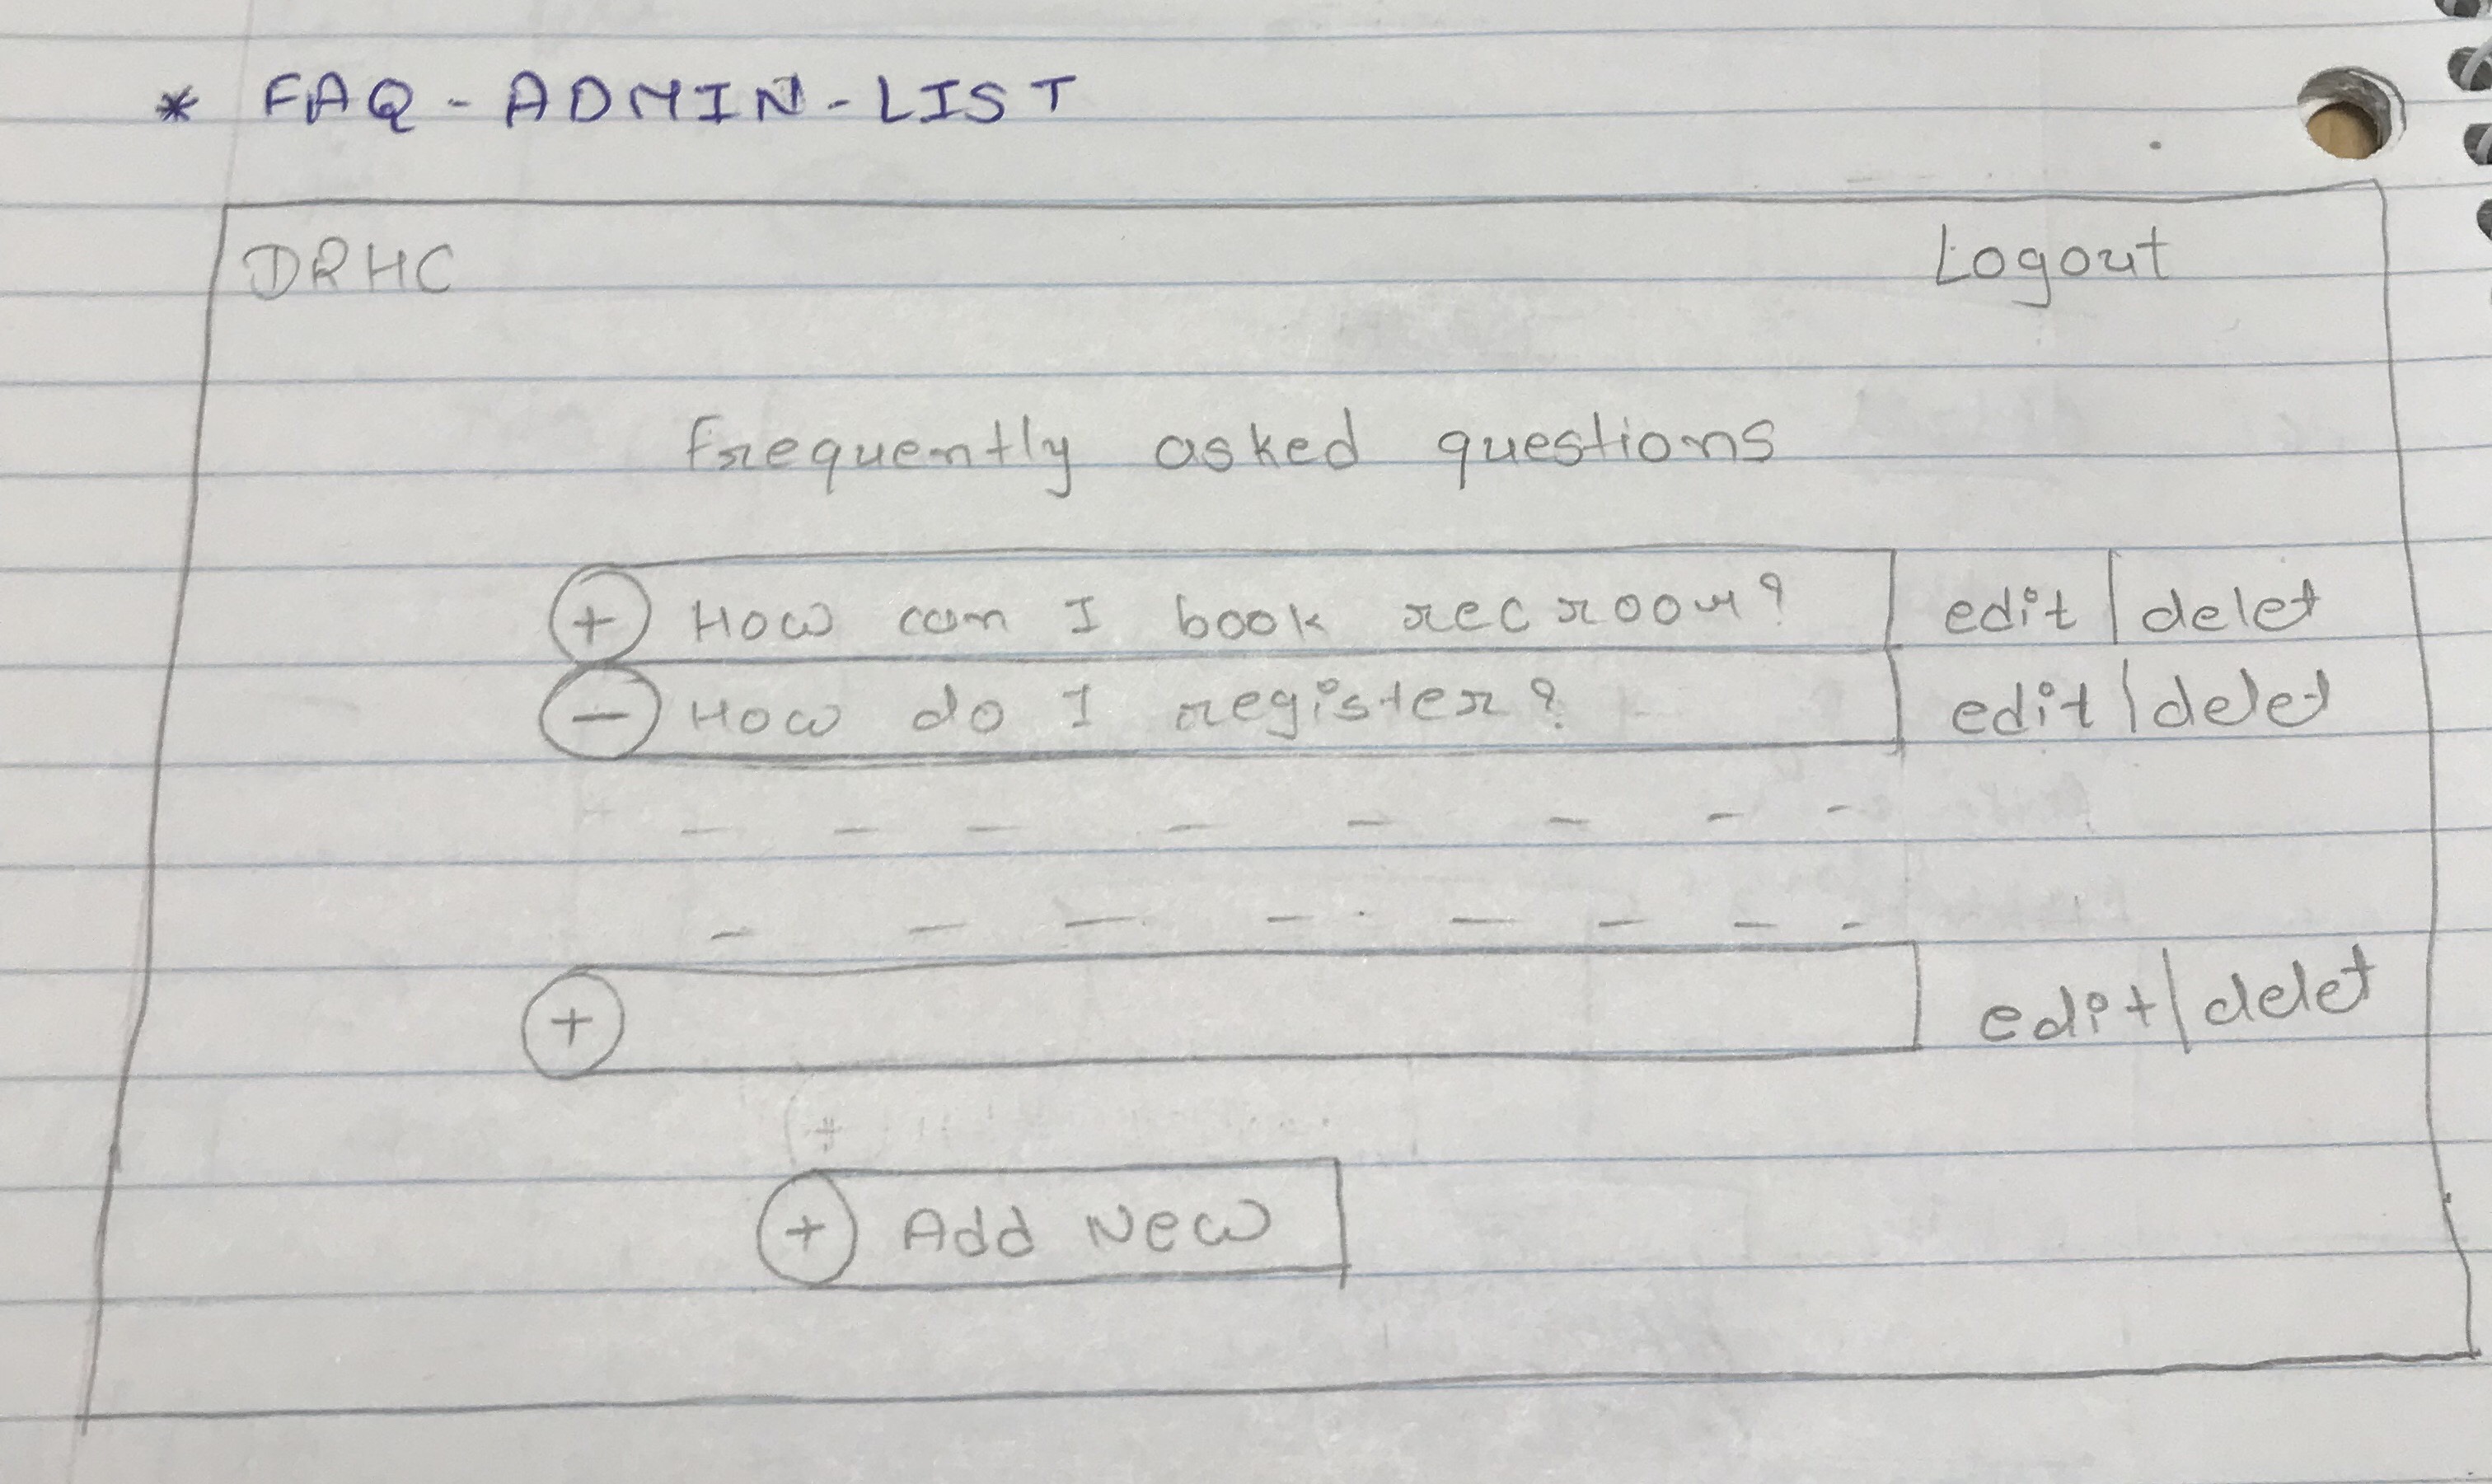 * FAQ - ADMIN - LIST
DRHC Logout
Frequently asked questions
+ How can I book rec room? edit | delet
- How do I register? edit | delet
- - - - - - - -
- - - - - - - -
+ edit | delet
+ Add New